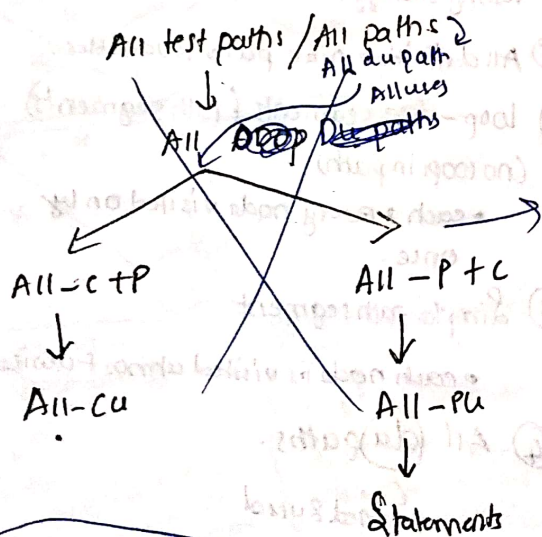 All test paths / All paths
All du path
All uses
All
Du paths
All-C+P
All-P+C
All-Cu
All-Pu
Statements